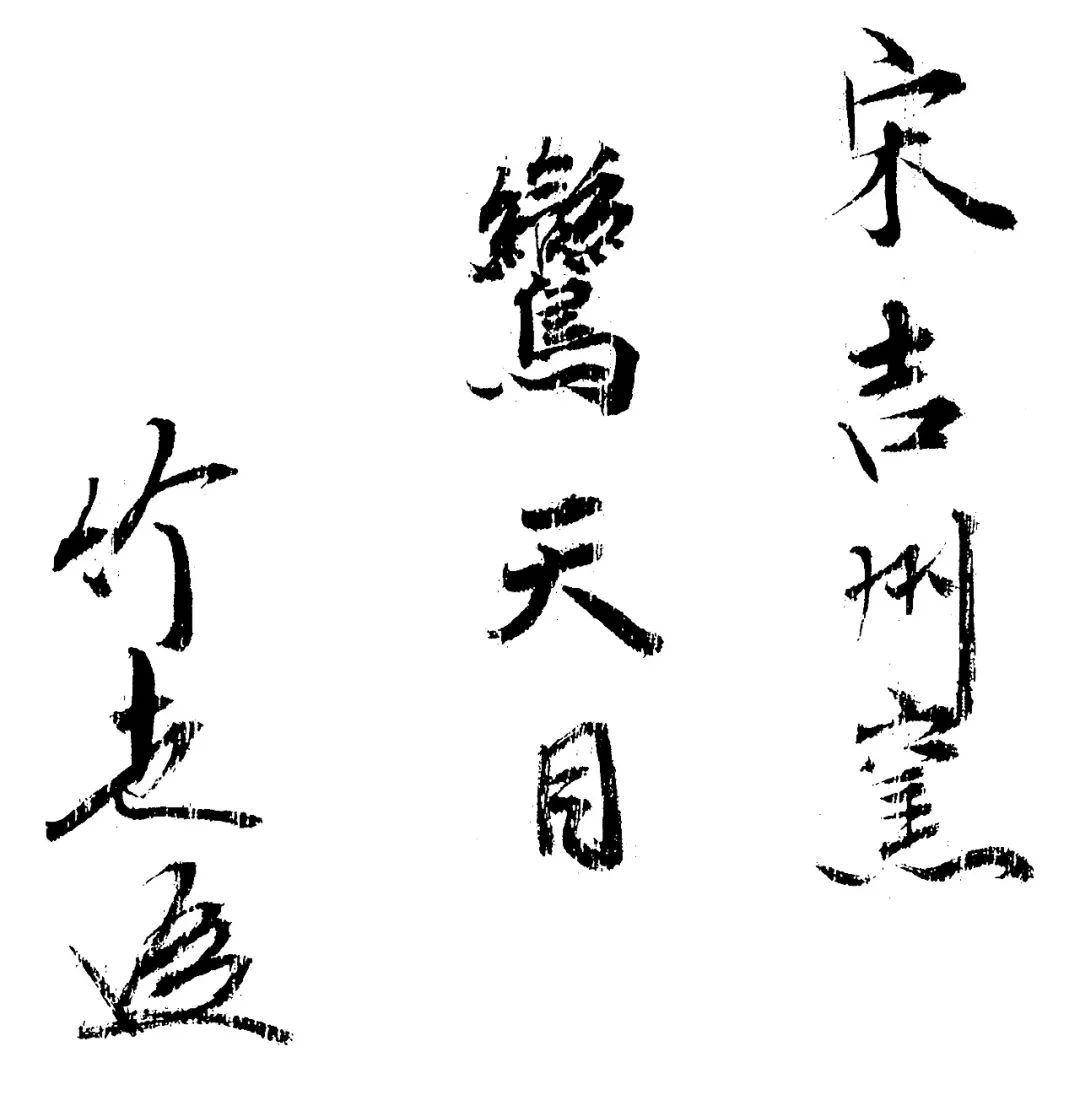 宋吉州窯
鸞天目
竹